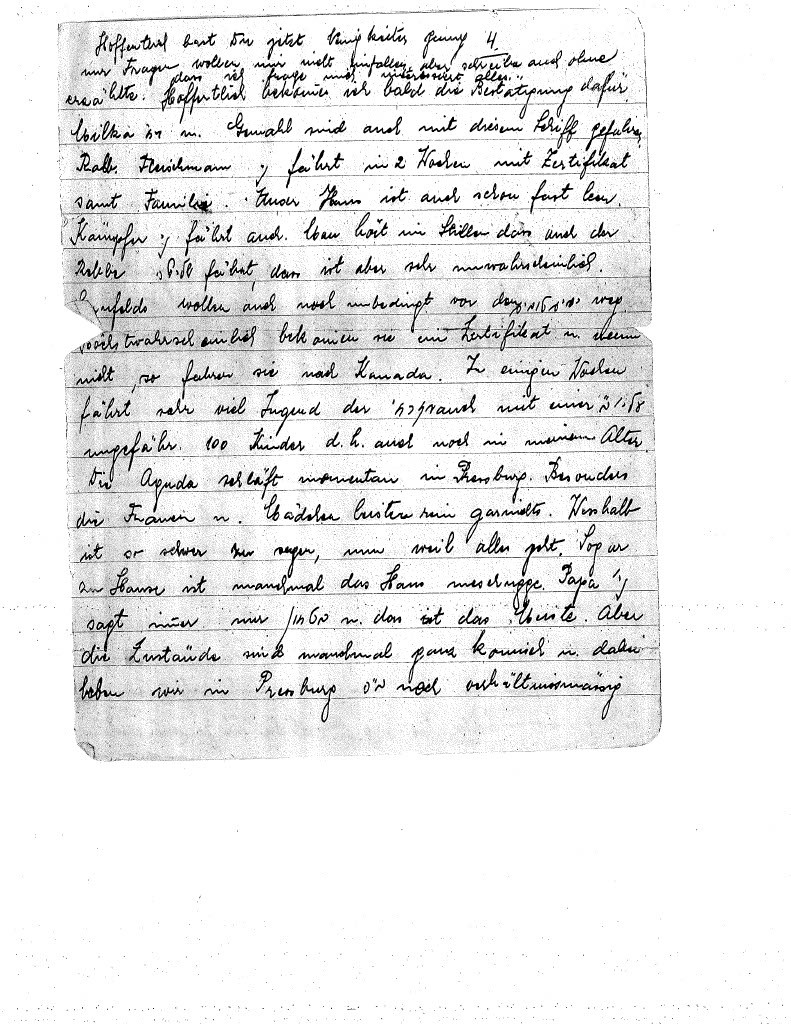 Hoffentlich hast Du jetzt Neuigkeiten genug 4
nur Fragen wollen mir nicht einfallen, aber schreibe auch ohne
dass ich frage mich interessiert alles."
erzählte. Hoffentlich bekomme ich bald die Bestätigung dafür.
Milka u. Gemahl sind auch mit diesem Schiff gefahren
Rabb. Fleischmann fährt in 2 Wochen mit Zertifikat
samt Familie. Unser Haus ist auch schon fast leer.
Kämpfer fährt auch. Man hört im Stillen dass auch der
Rebbe fährt, dass ist aber sehr unwahrscheinlich.
wollen auch noch unbedingt vor den weg.
höchstwahrscheinlich bekommen sie ein Zertifikat u. wenn
nicht, so fahren sie nach Kanada. In einigen Wochen
fährt sehr viel Jugend der auch mit einer עליה
ungefähr 100 Kinder d.h. auch noch in meinem Alter.
Die Aguda schläft momentan in Pressburg. Besonders
die Frauen u. Mädchen leisten rein garnichts. Weshalb
ist so schwer zu sagen, nun weil alles geht. Sogar
zu Hause ist manchmal das Haus meschugge. Papa
sagt immer nur u. das ist das Meiste. Aber
die Zustände sind manchmal ganz komisch u. dabei
leben wir in Pressburg noch verhältnismässig